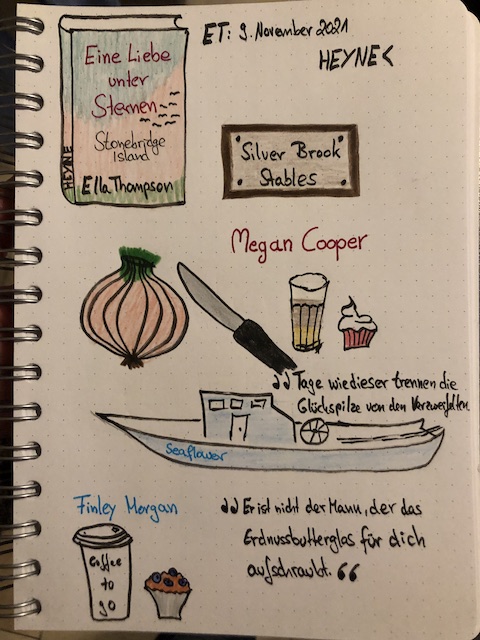 ET: 9. November 2021
HEYNE<
Eine Liebe
unter
Sternen
Stonebridge
Island
HEYNE
Ella Thompson
Silver Brook
Stables
Megan Cooper
„Tage wie dieser trennen die
Glückspilze von den Verzweifelten.
Seaflower
Finley Morgan
„Er ist nicht der Mann, der das
Erdnussbutterglas für dich
aufschraubt.“
Coffee
to
go